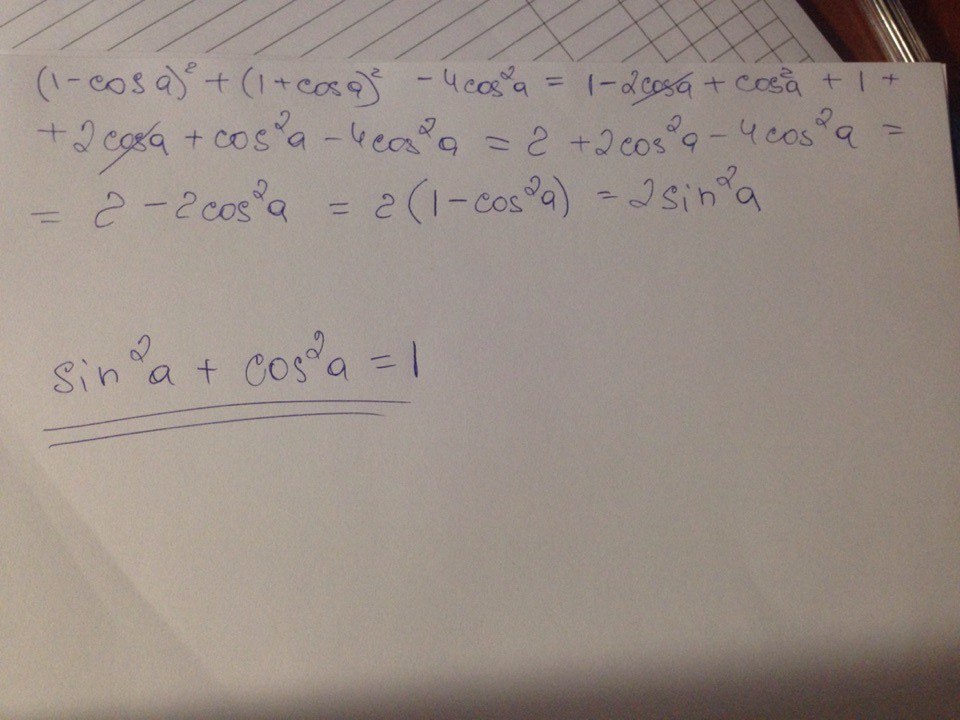 (1-cos a)² + (1+cos a)² - 4cos²a = 1 - 2cosa + cos²a + 1 +
+ 2cosa + cos²a - 4cos²a = 2 + 2cos²a - 4cos²a =
= 2 - 2cos²a = 2(1-cos²a) = 2sin²a
sin²a + cos²a = 1